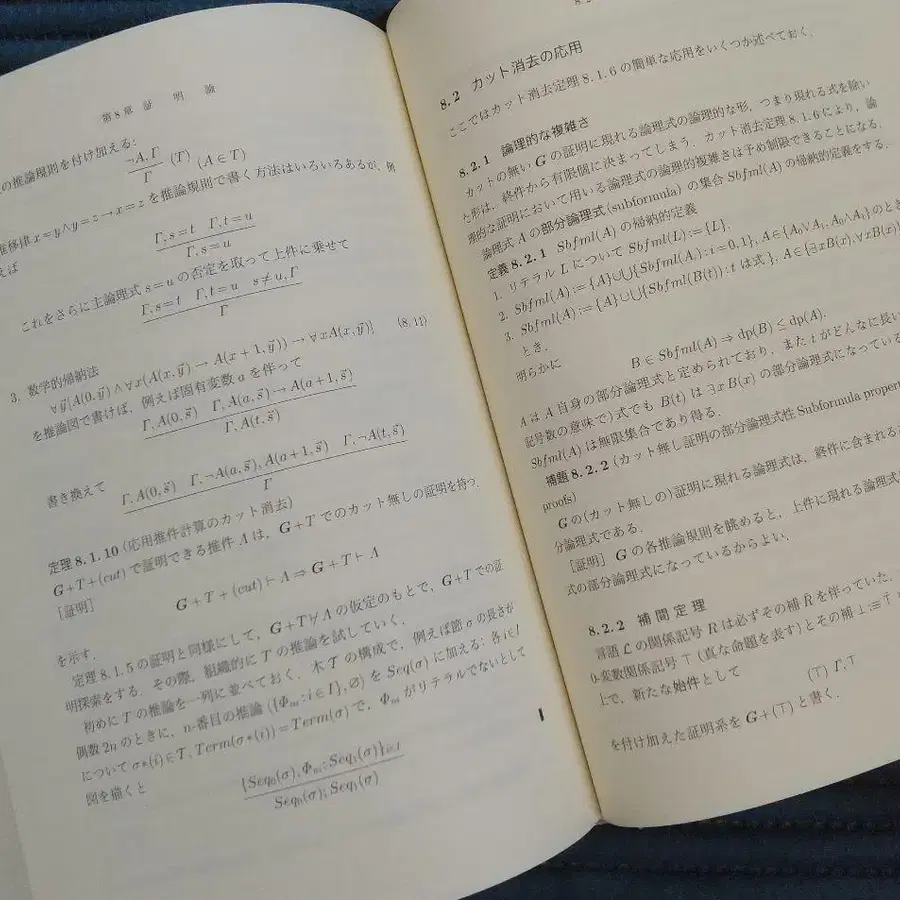 第8章 証明論
の推論規則を付け加える:
¬A,Γ
Γ
(T) (A∈T)
推移律 x=y∧y=z→x=z を推論規則で書く方法はいろいろあるが, 例
えば
Γ,s=t Γ,t=u
Γ,s=u
これをさらに主論理式 s=u の否定を取って上件に乗せて
Γ,s=t Γ,t=u s≠u,Γ
Γ
3. 数学的帰納法
∀y⃗[A(0,y⃗)∧∀x(A(x,y⃗)→A(x+1,y⃗))→∀xA(x,y⃗)] (8.12)
を推論図で書けば, 例えば固有変数 a を伴って
Γ,A(0,s⃗) Γ,A(a,s⃗)→A(a+1,s⃗)
Γ,A(t,s⃗)
書き換えて
Γ,A(0,s⃗) Γ,¬A(a,s⃗),A(a+1,s⃗) Γ,¬A(t,s⃗)
Γ
定理 8.1.10 (応用推件計算のカット消去)
G+T+(cut) で証明できる推件 Λ は, G+T でのカット無しの証明を持つ.
[証明]
G+T+(cut)⊢Λ⇒G+T⊢Λ
を示す.
定理 8.1.5 の証明と同様にして, G+T⊬Λ の仮定のもとで, G+T での証
明探索をする. その際, 組織的に T の推論を試していく.
初めに T の推論を一列に並べておく. 木 T の構成で, 例えば節 σ の長さが
偶数 2n のときに, n-番目の推論 ({Φni:i∈I},∅) を Seq(σ) に加える: 各 i∈I
について σ*(i)∈T, Term(σ*(i))=Term(σ) で, Φni がリテラルでないとして
図を描くと
{Seq0(σ),Φni;Seq1(σ)}i∈I
Seq0(σ);Seq1(σ)
8.2 カット消去の応用
ここではカット消去定理 8.1.6 の簡単な応用をいくつか述べておく.
8.2.1 論理的な複雑さ
カットの無い G の証明に現れる論理式の論理的な形, つまり現れる式を除い
た形は, 終件から有限個に決まってしまう. カット消去定理 8.1.6 により, 論
理的な証明において用いる論理式の論理的複雑さは予め制限できることになる.
論理式 A の部分論理式(subformula) の集合 Sbfml(A) の帰納的定義をする.
定義 8.2.1 Sbfml(A) の帰納的定義
1. リテラル L について Sbfml(L):={L}.
2. Sbfml(A):={A}∪⋃{Sbfml(Ai):i=0,1}, A∈{A0∨A1,A0∧A1} のとき
3. Sbfml(A):={A}∪⋃{Sbfml(B(t)):t は式}, A∈{∃xB(x),∀xB(x)}
とき.
明らかに
B∈Sbfml(A)⇒dp(B)≦dp(A).
A は A 自身の部分論理式と定められており, また t がどんなに長い
記号数の意味で) 式でも B(t) は ∃xB(x) の部分論理式になっている
Sbfml(A) は無限集合であり得る.
補題 8.2.2 (カット無し証明の部分論理式性 Subformula property
proofs)
G の(カット無しの) 証明に現れる論理式は, 終件に含まれる
分論理式である.
[証明] G の各推論規則を眺めると, 上件に現れる論理式
式の部分論理式になっているからよい.
8.2.2 補間定理
言語 L の関係記号 R は必ずその補 R̄ を伴っていた.
0-変数関係記号 ⊤ (真な命題を表す) とその補 ⊥:≡⊤̄
上で, 新たな始件として
(⊤) Γ,⊤
を付け加えた証明系を G+(⊤) と書く.